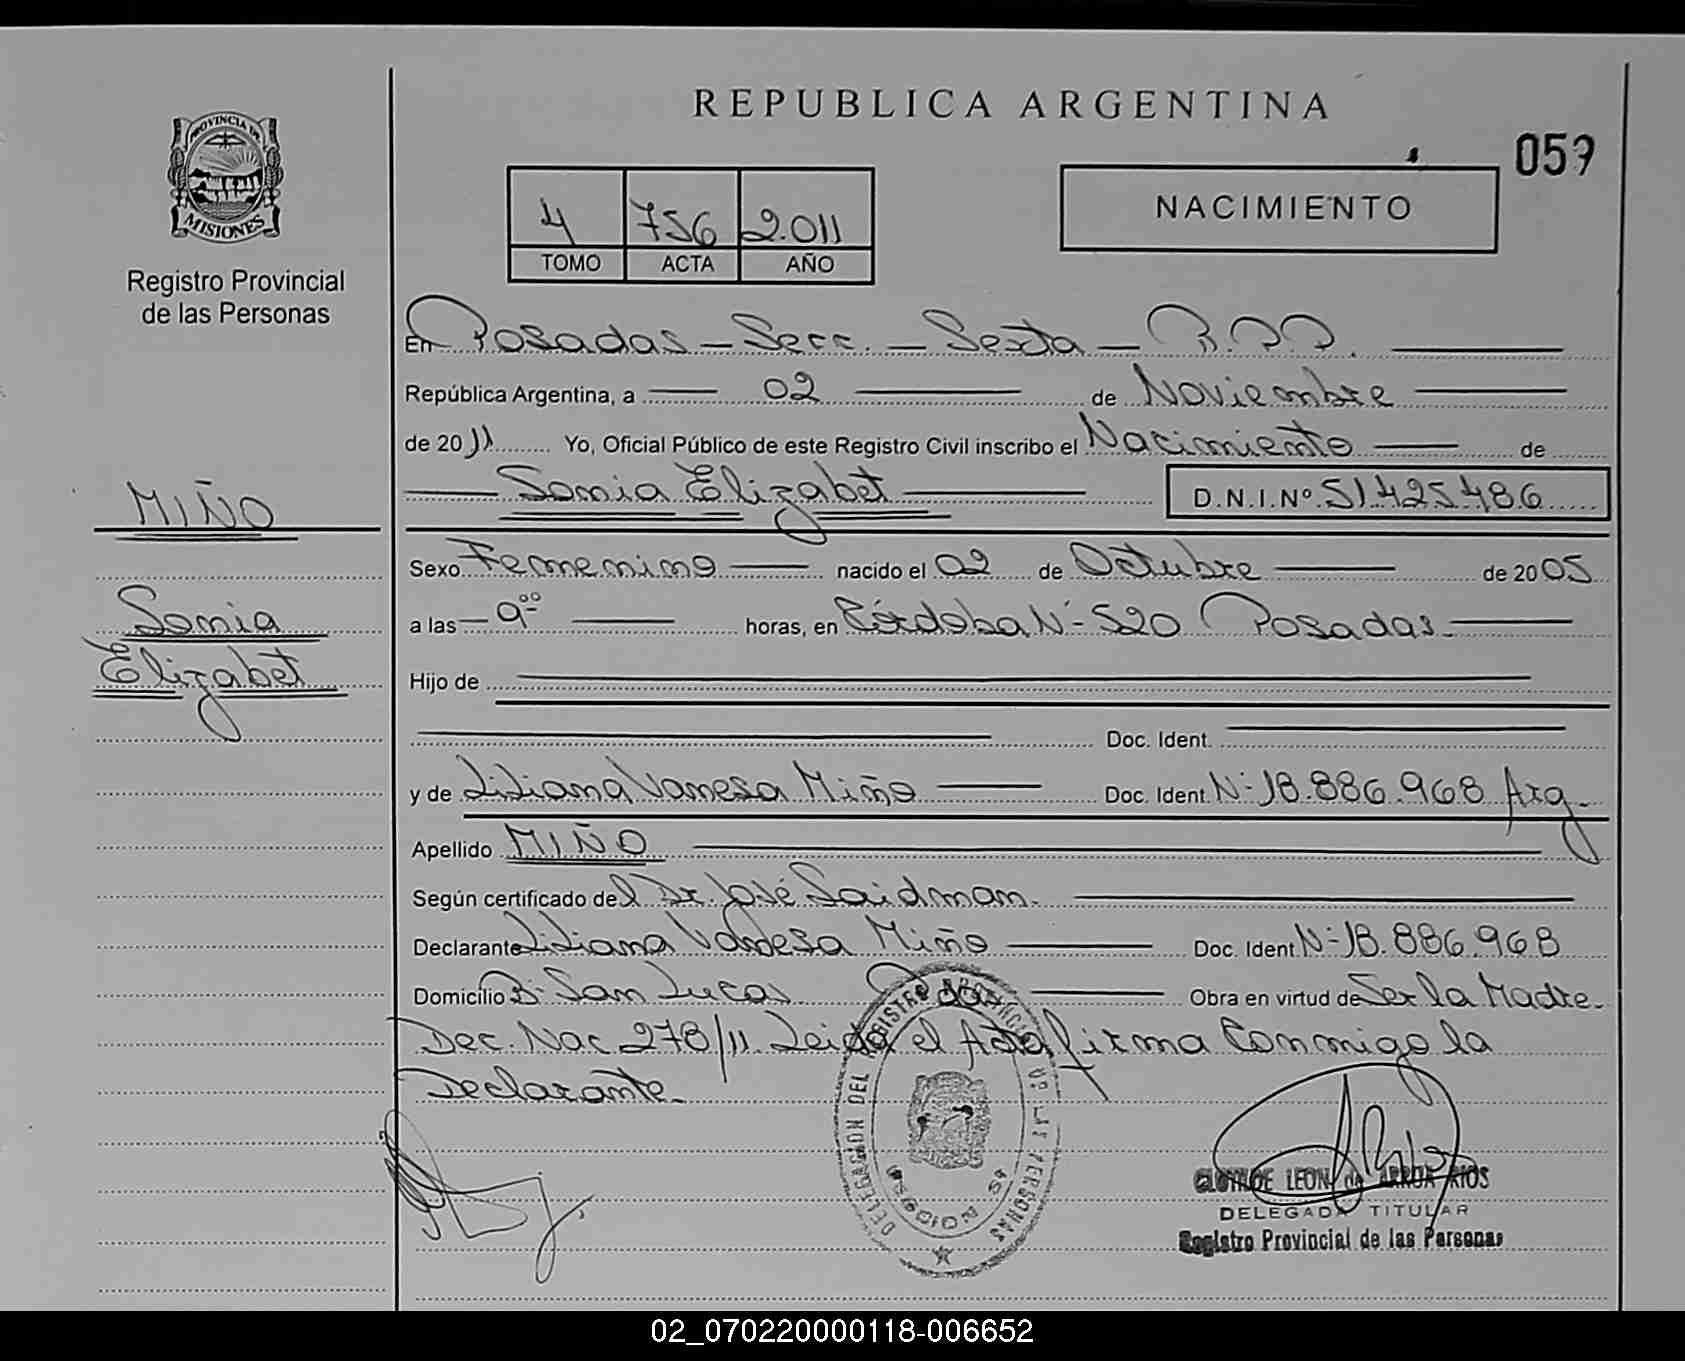 REPUBLICA ARGENTINA
059
PROVINCIA DE
MISIONES
Registro Provincial
de las Personas
4 756 2.011
TOMO ACTA AÑO
NACIMIENTO
En Posadas - Secc. - Sexta - R.P.P.
República Argentina, a 02 de Noviembre
de 2011 Yo, Oficial Público de este Registro Civil inscribo el Nacimiento de
Sonia Elizabet D.N.I.Nº 51.425.486
MIÑO
Sonia
Elizabet
Sexo Femenino nacido el 02 de Octubre de 2005
a las 9°° horas, en Córdoba Nº 520 Posadas.
Hijo de
Doc. Ident.
y de Liliana Vanesa Miño Doc. Ident. Nº 18.886.968 Arg.
Apellido MIÑO
Según certificado del Dr. José Saidman.
Declarante Liliana Vanesa Miño Doc. Ident Nº 18.886.968
Domicilio Bº San Lucas Pdas. Obra en virtud de Ser la Madre.
Dec. Nac 278/11. Leida el Acta firma Conmigo la
Declarante.
DELEGACION DEL REGISTRO PROVINCIAL DE LAS PERSONAS
CLOTILDE LEON de ARRUA RIOS
DELEGADA TITULAR
Registro Provincial de las Personas
02_070220000118-006652